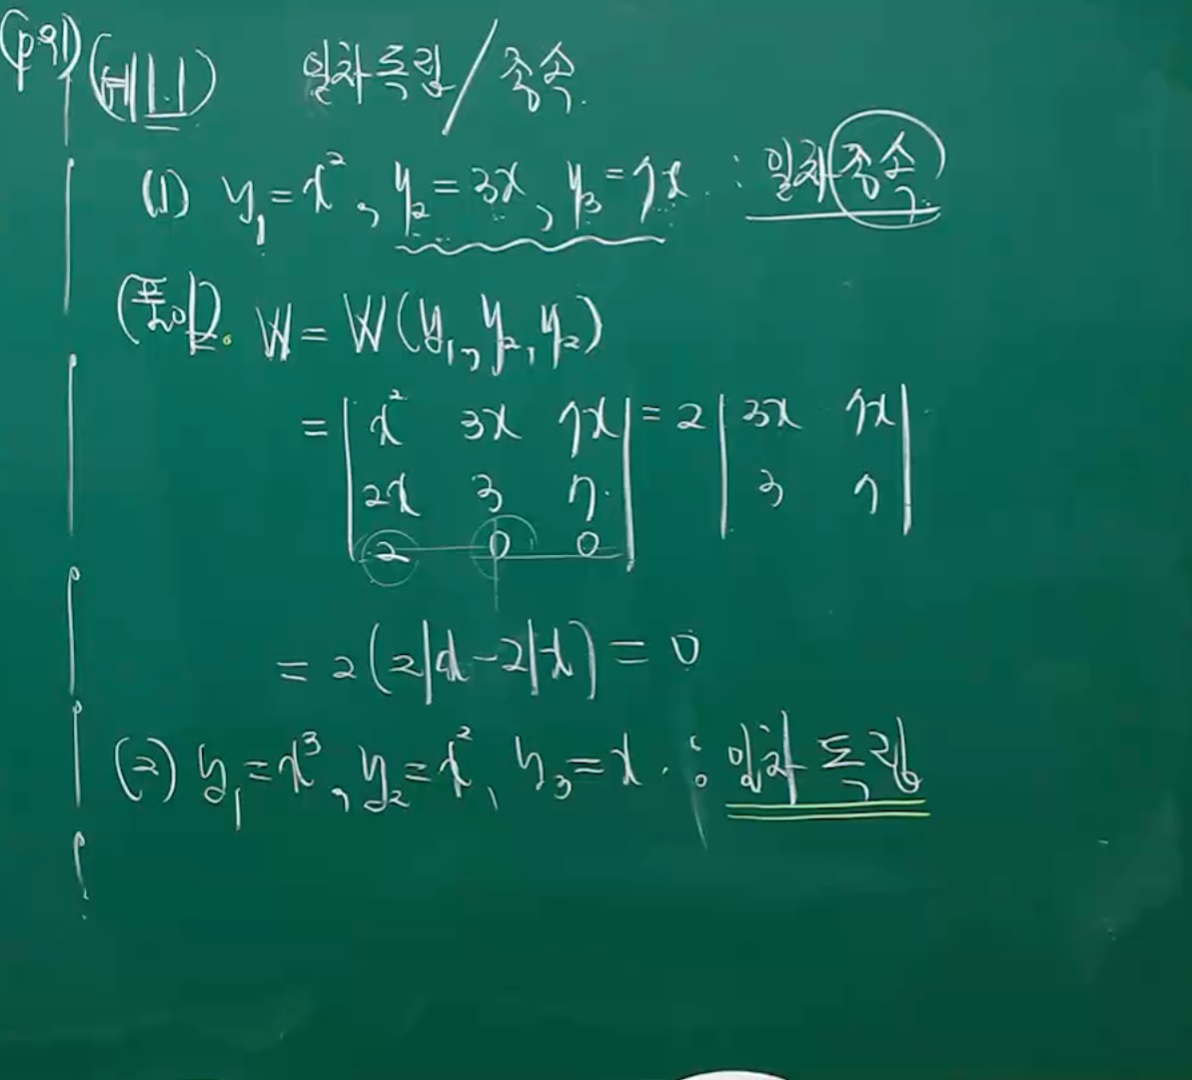 (p91)
(예1.1) 일차독립/종속.
(1) y₁=x², y₂=3x, y₃=7x : 일차종속
(풀이). W=W(y₁, y₂, y₂)
=| x² 3x 7x |=2| 3x 7x |
2x 3 7 3 7
2 0 0
=2(21x-21x)=0
(2) y₁=x³, y₂=x², y₃=x. : 일차독립